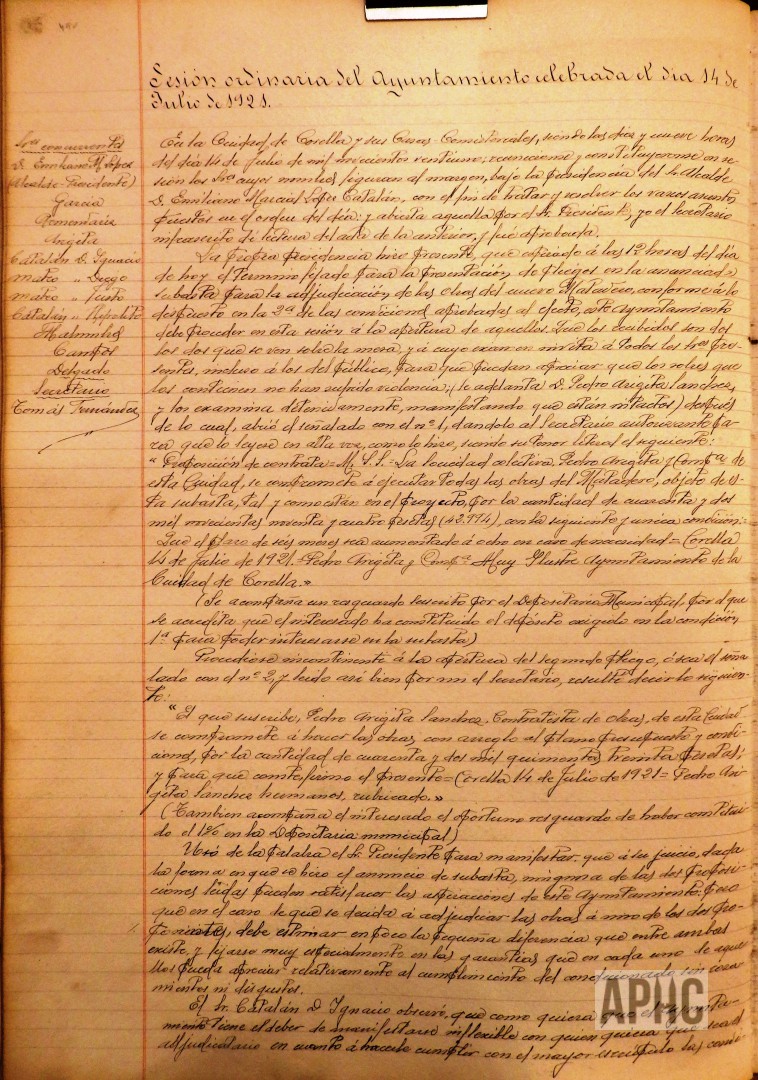 Sesión ordinaria del Ayuntamiento celebrada el dia 14 de
Julio de 1921.
Sres concurrentes
D. Emiliano M. López
(Alcalde-Presidente)
Garcia
Armendariz
Arigita
Catalán D. Ignacio
Mateo " Diego
Mateo " Justo
Catalán " Hipólito
Campos
Delgado
Secretario
Tomás Fernández
En la Ciudad de Corella y sus Casas Consistoriales, siendo las diez y nueve horas
del dia 14 de Julio de mil novecientos veintiuno; reunieronse y constituyeronse en se-
sión los Sres cuyos nombres figuran al margen, bajo la Presidencia del Sr. Alcalde
D. Emiliano Marcial López Catalán, con el fin de tratar y resolver los varios asuntos
puestos en el orden del dia: y abierta aquella por el Sr. Presidente, yo el Secretario
infrascrito dí lectura del acta de la anterior, y fué aprobada.
La propia Presidencia hizo presente, que espirado á las 12 horas del dia
de hoy el término fijado para la presentación de pliegos en la anunciada
subasta para la adjudicación de las obras del nuevo Matadero, conforme á lo
dispuesto en la 2ª de las condiciones aprobadas al efecto, este Ayuntamiento
debe proceder en esta sesión á la apertura de aquellos. Que los recibidos son dos
los dos que se ven sobre la mesa, y á cuyo examen invita á todos los Sres pre-
sentes, incluso á los del público, para que puedan apreciar que los sobres que
los contienen no han sufrido violencia; (se adelanta D. Pedro Arigita Sanchez,
y los examina detenidamente, manifestando que están intactos) después
de lo cual, abrió el señalado con el nº 1, dandolo al Secretario autorizante pa-
ra que lo leyese en alta voz, como lo hizo, siendo su tenor literal el siguiente:
"Proposición de contrata = M. Y. S. = La Sociedad colectiva Pedro Arigita y Compª de
esta Ciudad, se compromete á ejecutar todas las obras del Matadero, objeto de es-
ta subasta, tal y como están en el proyecto, por la cantidad de cuarenta y dos
mil novecientas noventa y cuatro pesetas (42.994), con la siguiente y unica condición:
Que el plazo de seis meses sea aumentado á ocho en caso de necesidad = Corella
14 de Julio de 1921 = Pedro Arigita y Compª = Muy Ilustre Ayuntamiento de la
Ciudad de Corella."
(Se acompaña un resguardo suscrito por el Depositario Municipal, por el que
se acredita que el interesado ha constituido el depósito exigido en la condición
1ª para poder interesarse en la subasta)
Procediose incontinente á la apertura del segundo pliego, ó sea el seña-
lado con el nº 2, y leido asi bien por mi el Secretario, resultó decir lo siguien-
te:
"El que suscribe, Pedro Arigita Sanchez, Contratista de Obras, de esta Ciudad
se compromete á hacer las obras, con arreglo al plano presupuesto y condi-
ciones, por la cantidad de cuarenta y dos mil quinientas treinta pesetas;
y para que conste, firmo el presente = Corella 14 de Julio de 1921 = Pedro Ari-
gita Sanchez hermanos, rubricado."
(Tambien acompaña el interesado el oportuno resguardo de haber constitui-
do el 1% en la Depositaria municipal)
Usó de la palabra el Sr. Presidente para manifestar que á su juicio, dada
la forma en que se hizo el anuncio de subasta, ninguna de las dos proposi-
ciones leidas pueden satisfacer las aspiraciones de este Ayuntamiento, pero
que en el caso de que se decida á adjudicar las obras á uno de los dos pro-
ponentes, debe estimar en poco la pequeña diferencia que entre ambos
existe, y fijarse muy especialmente en las garantias que en cada uno de aque-
llos pueda apreciar relativamente al cumplimiento del condicionado sin
mientos ni disgustos.
El Sr. Catalán D. Ignacio observó, que como quiera que el Ayunta-
miento tiene el deber de manifestarse inflexible con quien quiera que sea el
adjudicatario en cuanto á hacerle cumplir con el mayor escrúpulo las condi-
APUC